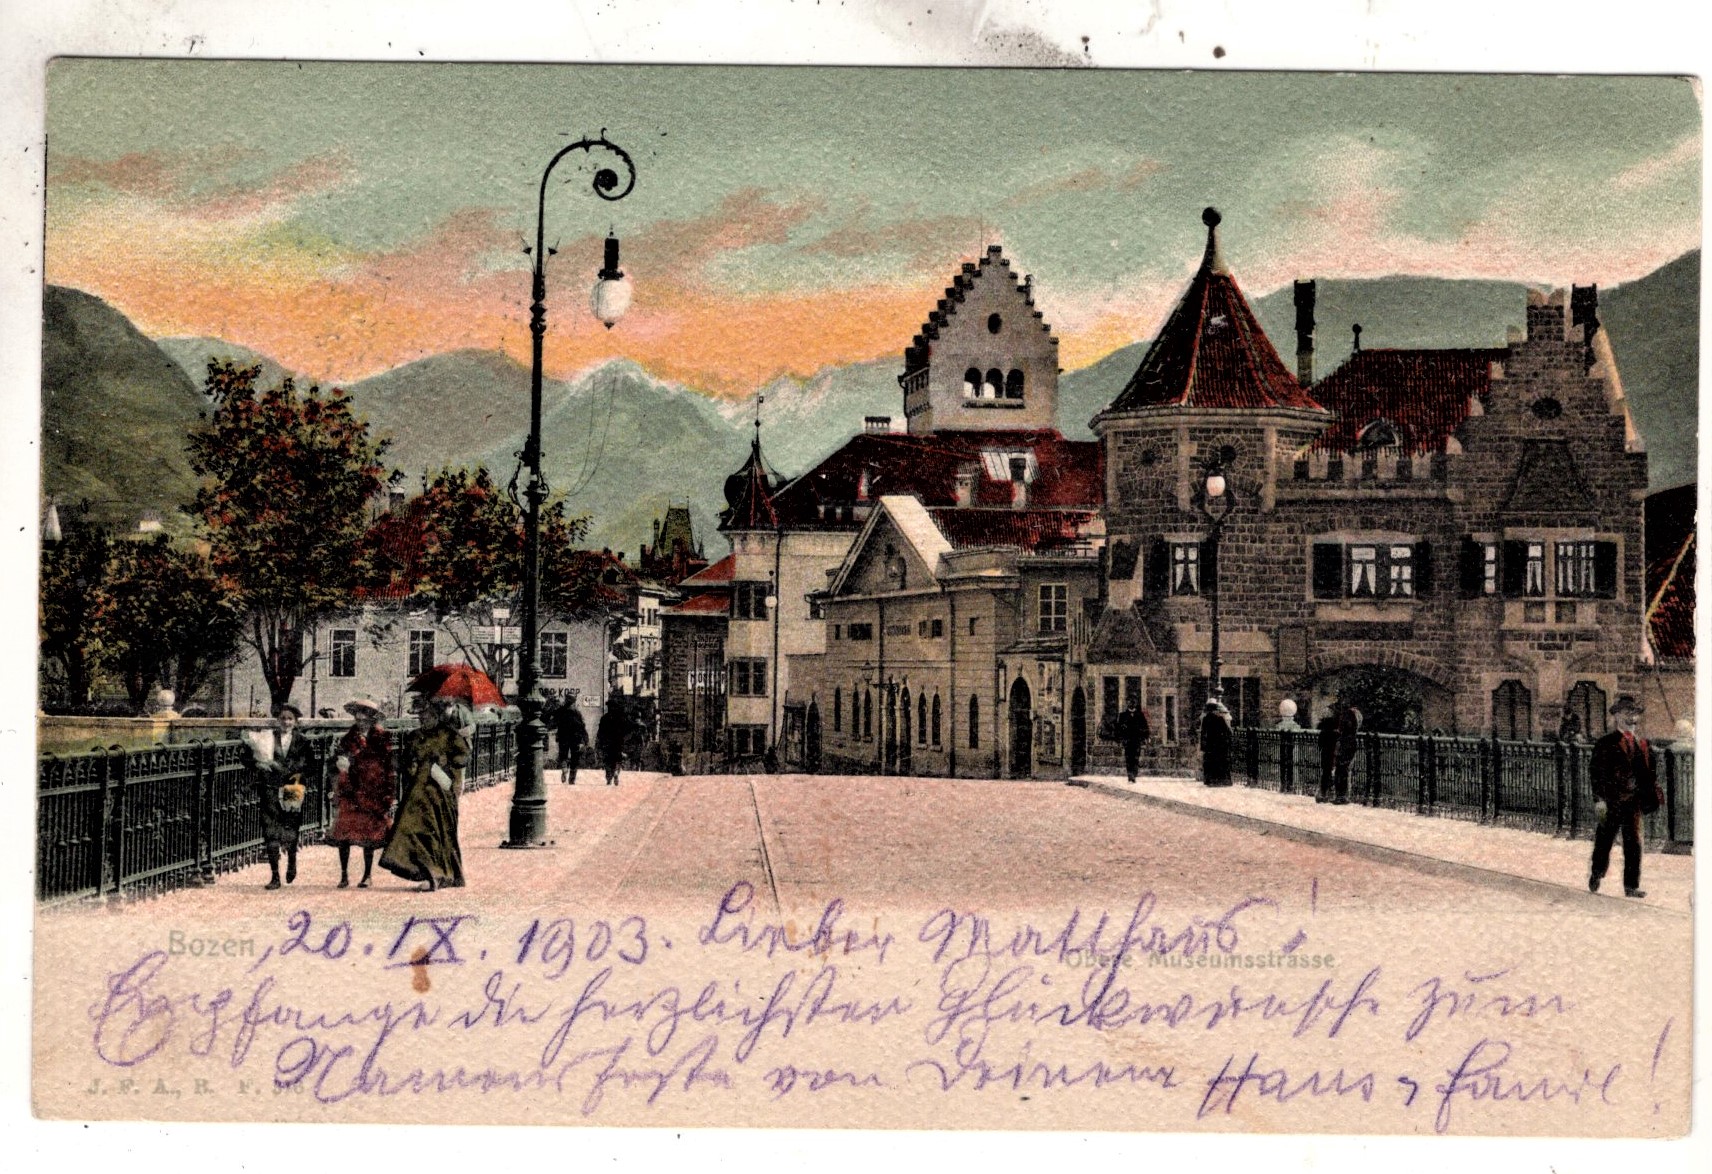 Bozen, 20. IX. 1903. Lieber Matthäus!
Obere Museumsstrasse
Empfange die herzlichsten Glückwünsche zum
Namensfeste von Deinem Hans & Famil!
J. F. A., B. F.